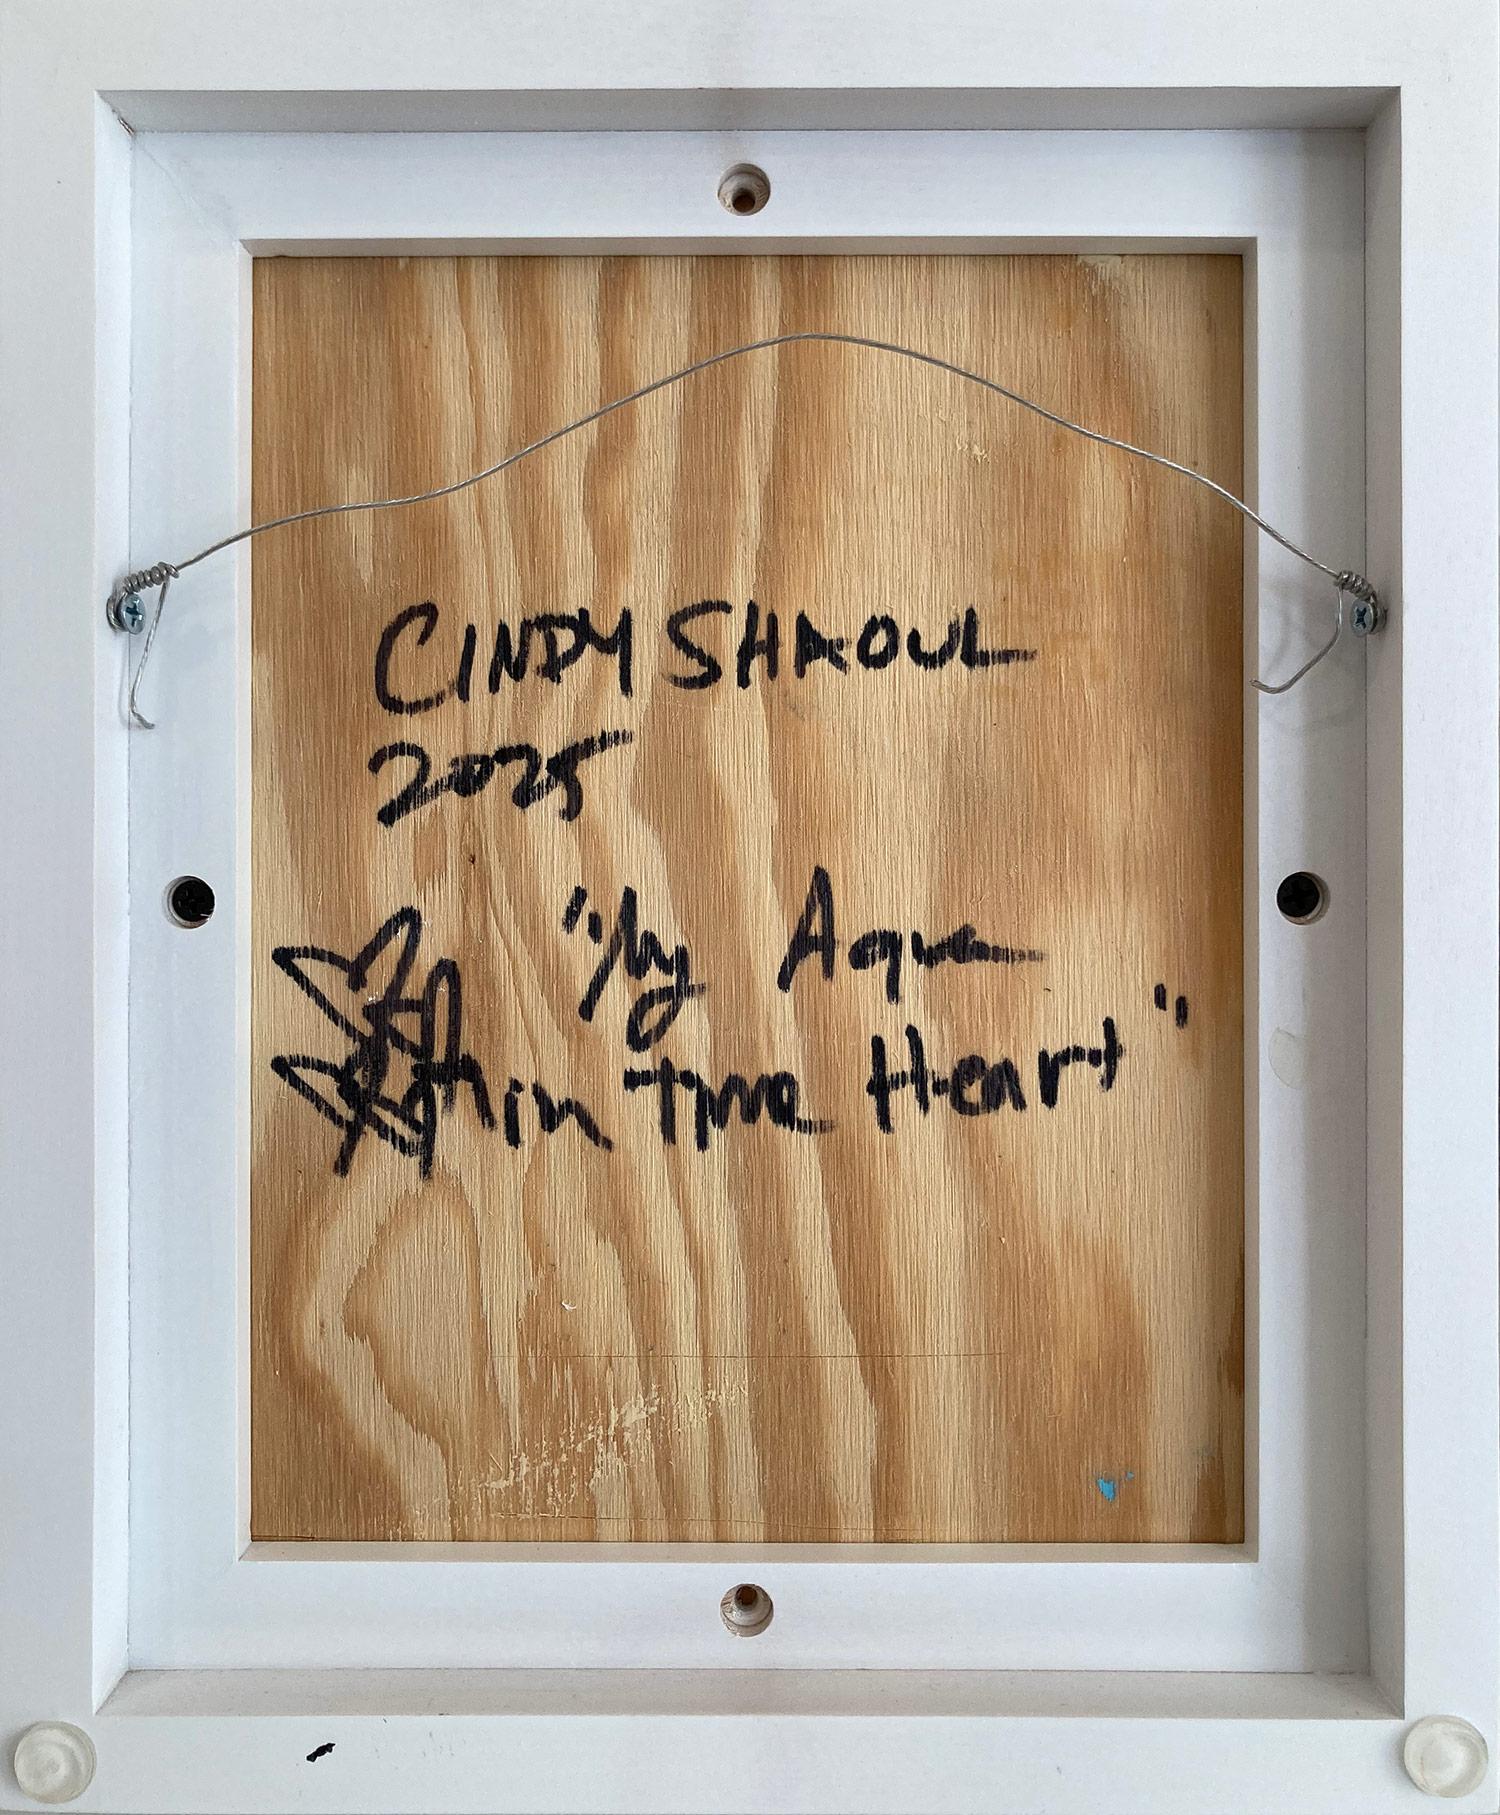 CINDY SHAOUL
2025
"My Aqua
in Heart"